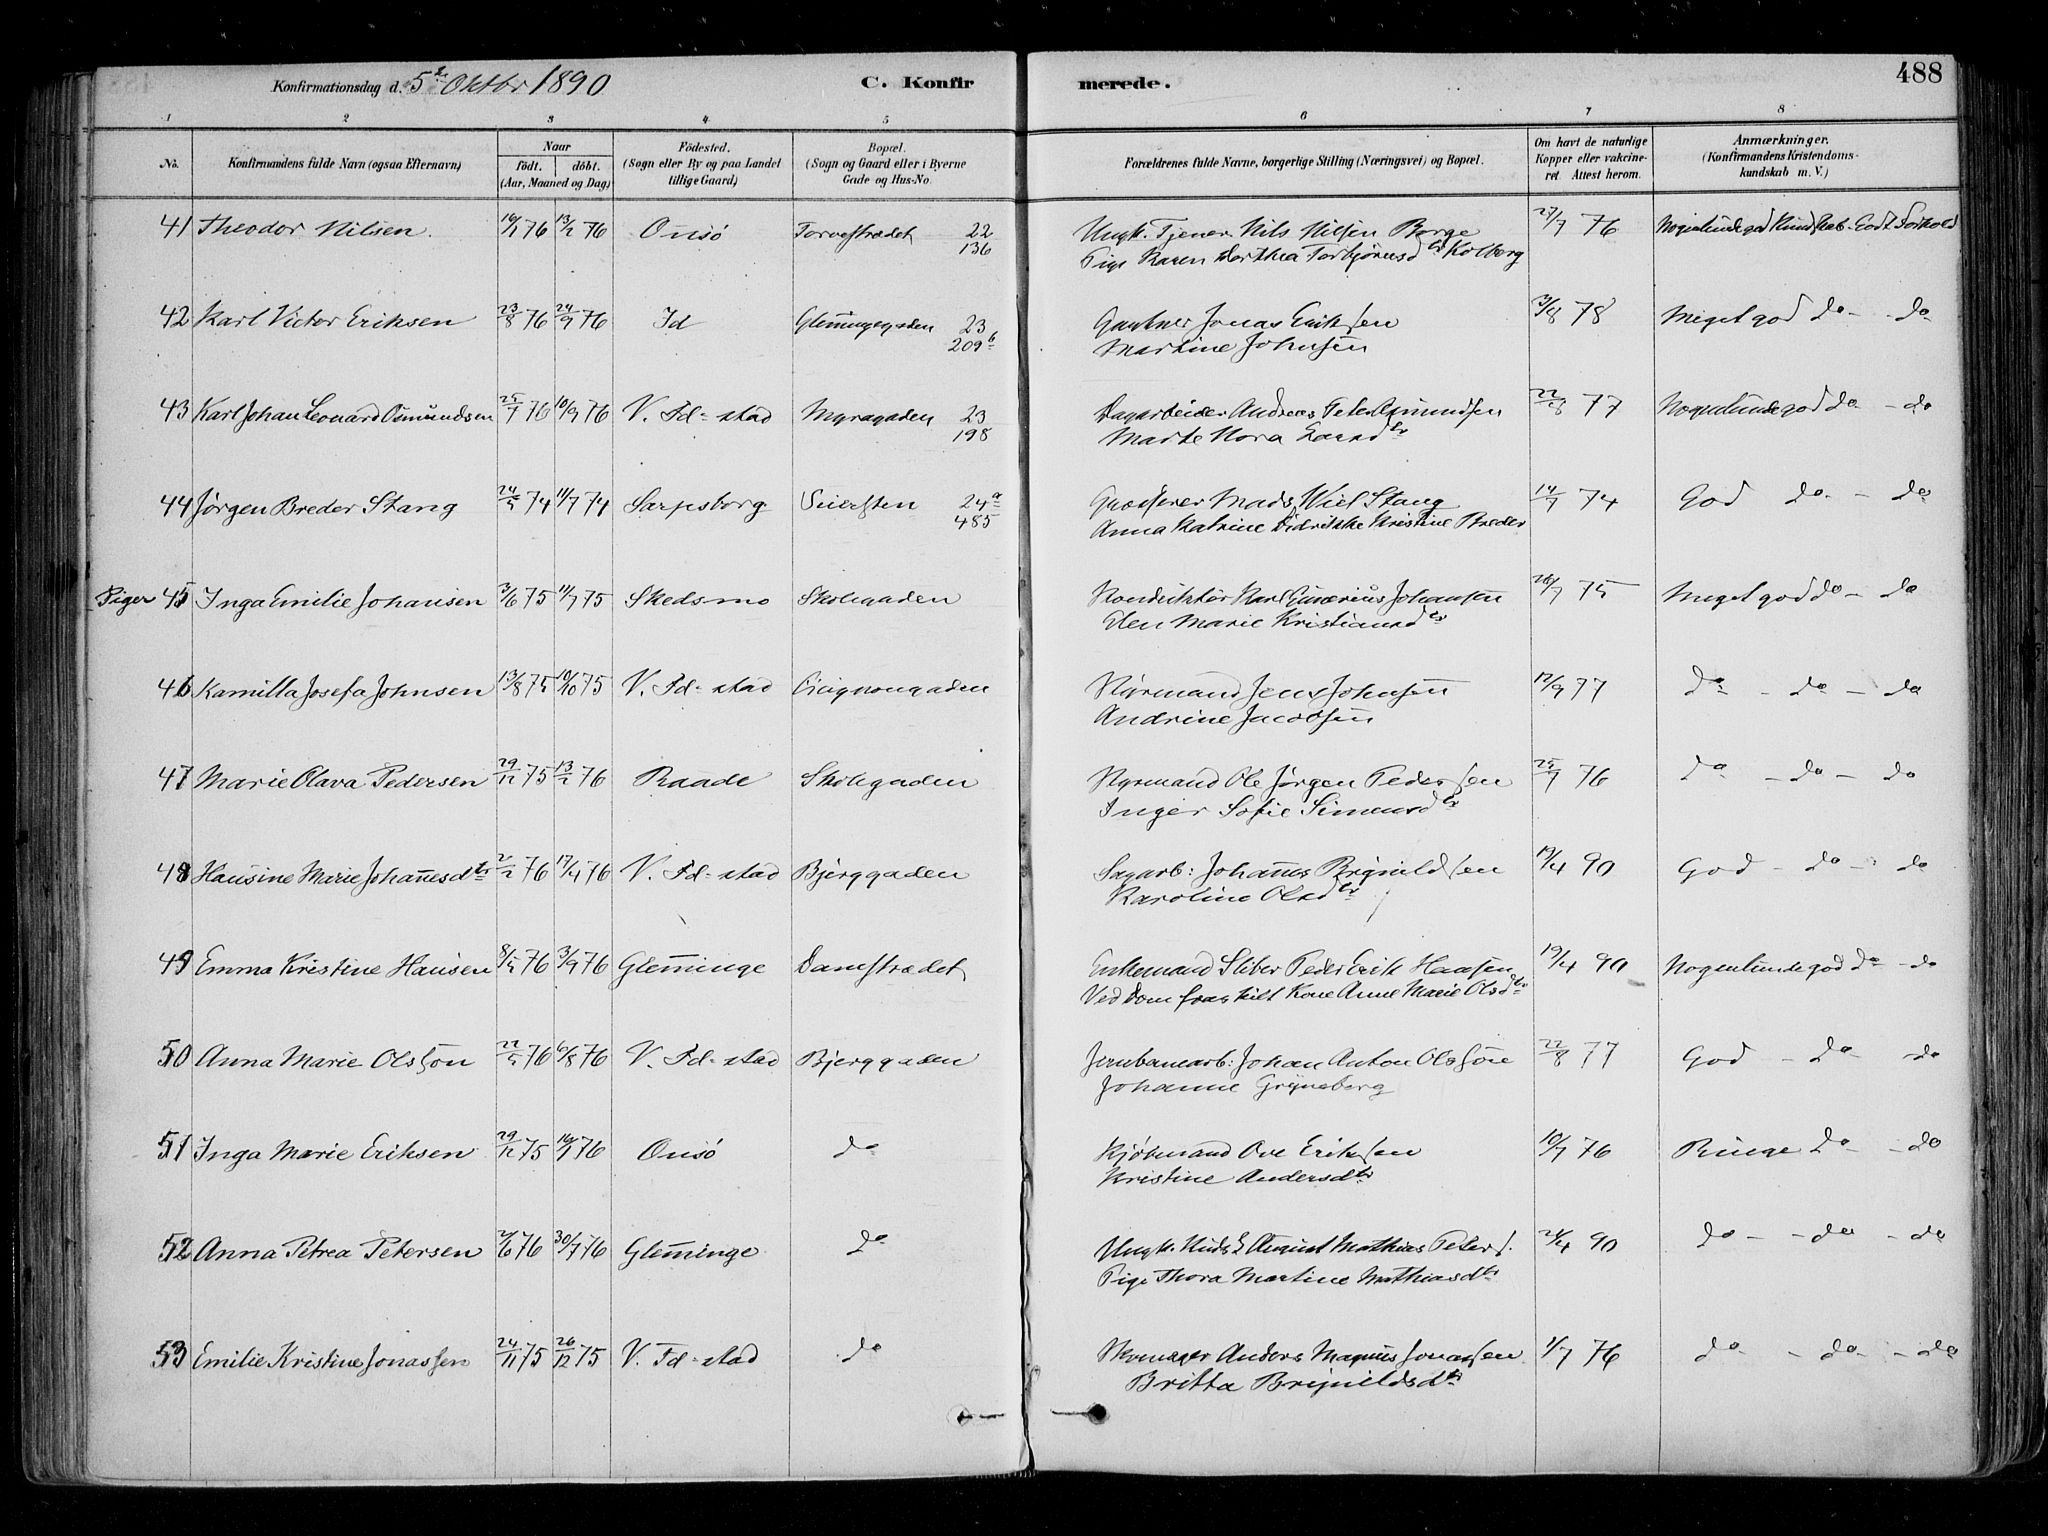 Konfirmationsdag d. 5te Oktbr 1890 C. Konfirmerede. 488
1 2 3 4 5 6 7 8
No. Konfirmandens fulde Navn (ogsaa Efternavn) Naar födt. döbt. (Aar, Maaned og Dag) Födested. (Sogn eller By og paa Landet tillige Gaard) Bopæl. (Sogn og Gaard eller i Byerne Gade og Hus-No. Forældrenes fulde Navne, borgerlige Stilling (Næringsvei) og Bopæl. Om havt de naturlige Kopper eller vakcineret. Attest herom. Anmærkninger. (Konfirmandens Kristendomskundskab m. V.)
41 Theodor Nilsen 16/1 76 13/2 76 Onsö Torvestrædet 22 136 Ungk. Tjener Nils Nilsen Borge 27/7 76 Nogenlunde god Kundskab - Godt Forhold
Pige Karen Dorthea Torbjörnsdtr Kolberg
42 Karl Victor Eriksen 23/8 76 24/9 76 Id Glemmegaden 23 209b Gartner Jonas Eriksen 3/8 78 Meget god do - do
Martine Johnsen
43 Karl Johan Leonard Osmundsen 25/7 76 10/9 76 V. Fd=stad Myragaden 23 198 Dagarbeider Andreas Peter Osmundsen 22/8 77 Nogenlunde god do - do
Marte Nora Larsdtr
44 Jørgen Breder Stang 24/5 74 11/7 74 Sarpsborg Seiersten 24a 485 Grosserer Mads Wiel Stang 14/7 74 God do - do
Anna Katrine Didrikke Kristine Breder
Piger 45 Inga Emilie Johansen 3/6 75 11/7 75 Skedsmo Skolegaden Konduktör Karl Gunerius Johansen 28/7 75 Meget god do - do
Elen Marie Kristiansdtr
46 Kamilla Josefa Johnsen 13/8 75 10/10 75 V. Fd=stad Cicignongaden Styrmand Jens Johnsen 12/9 77 do - do - do
Andrine Jacobsen
47 Marie Olava Pedersen 29/12 75 13/2 76 Raade Skolegaden Styrmand Ole Jørgen Pedersen 25/7 76 do - do - do
Inger Sofie Simensdtr
48 Hansine Marie Johannesdtr 2/2 76 17/4 76 V. Fd=stad Bjerggaden Sagarb: Johannes Brynildsen 19/4 90 God - do - do
Karoline Olsdtr
49 Emma Kristine Hansen 8/5 76 3/9 76 Glemminge Damstrædet Enkemand Sliber Peder Erik Hansen 19/4 90 Nogenlunde god do - do
Ved Dom fraskilt Kone Anne Marie Olsdtr
50 Anna Marie Olsson 22/5 76 6/8 76 V. Fd=stad Bjerggaden Jernbanearb: Johan Anton Olsson 22/8 77 God - do - do
Johanne Gryneberg
51 Inga Marie Eriksen 29/12 75 16/1 76 Onsö do Kjöbmand Ove Eriksen 10/7 76 Ringe do - do
Kristine Andersdtr
52 Anna Petrea Petersen 2/6 76 30/7 76 Glemminge do Ungk. August Mathias Peters. 21/4 90 do - do - do
Pige Thora Martine Mathiasdtr
53 Emilie Kristine Jonassen 24/11 75 26/12 75 V. Fd=stad do Skomager Anders Magnus Jonassen 1/7 76 do - do - do
Britta Brynildsdtr